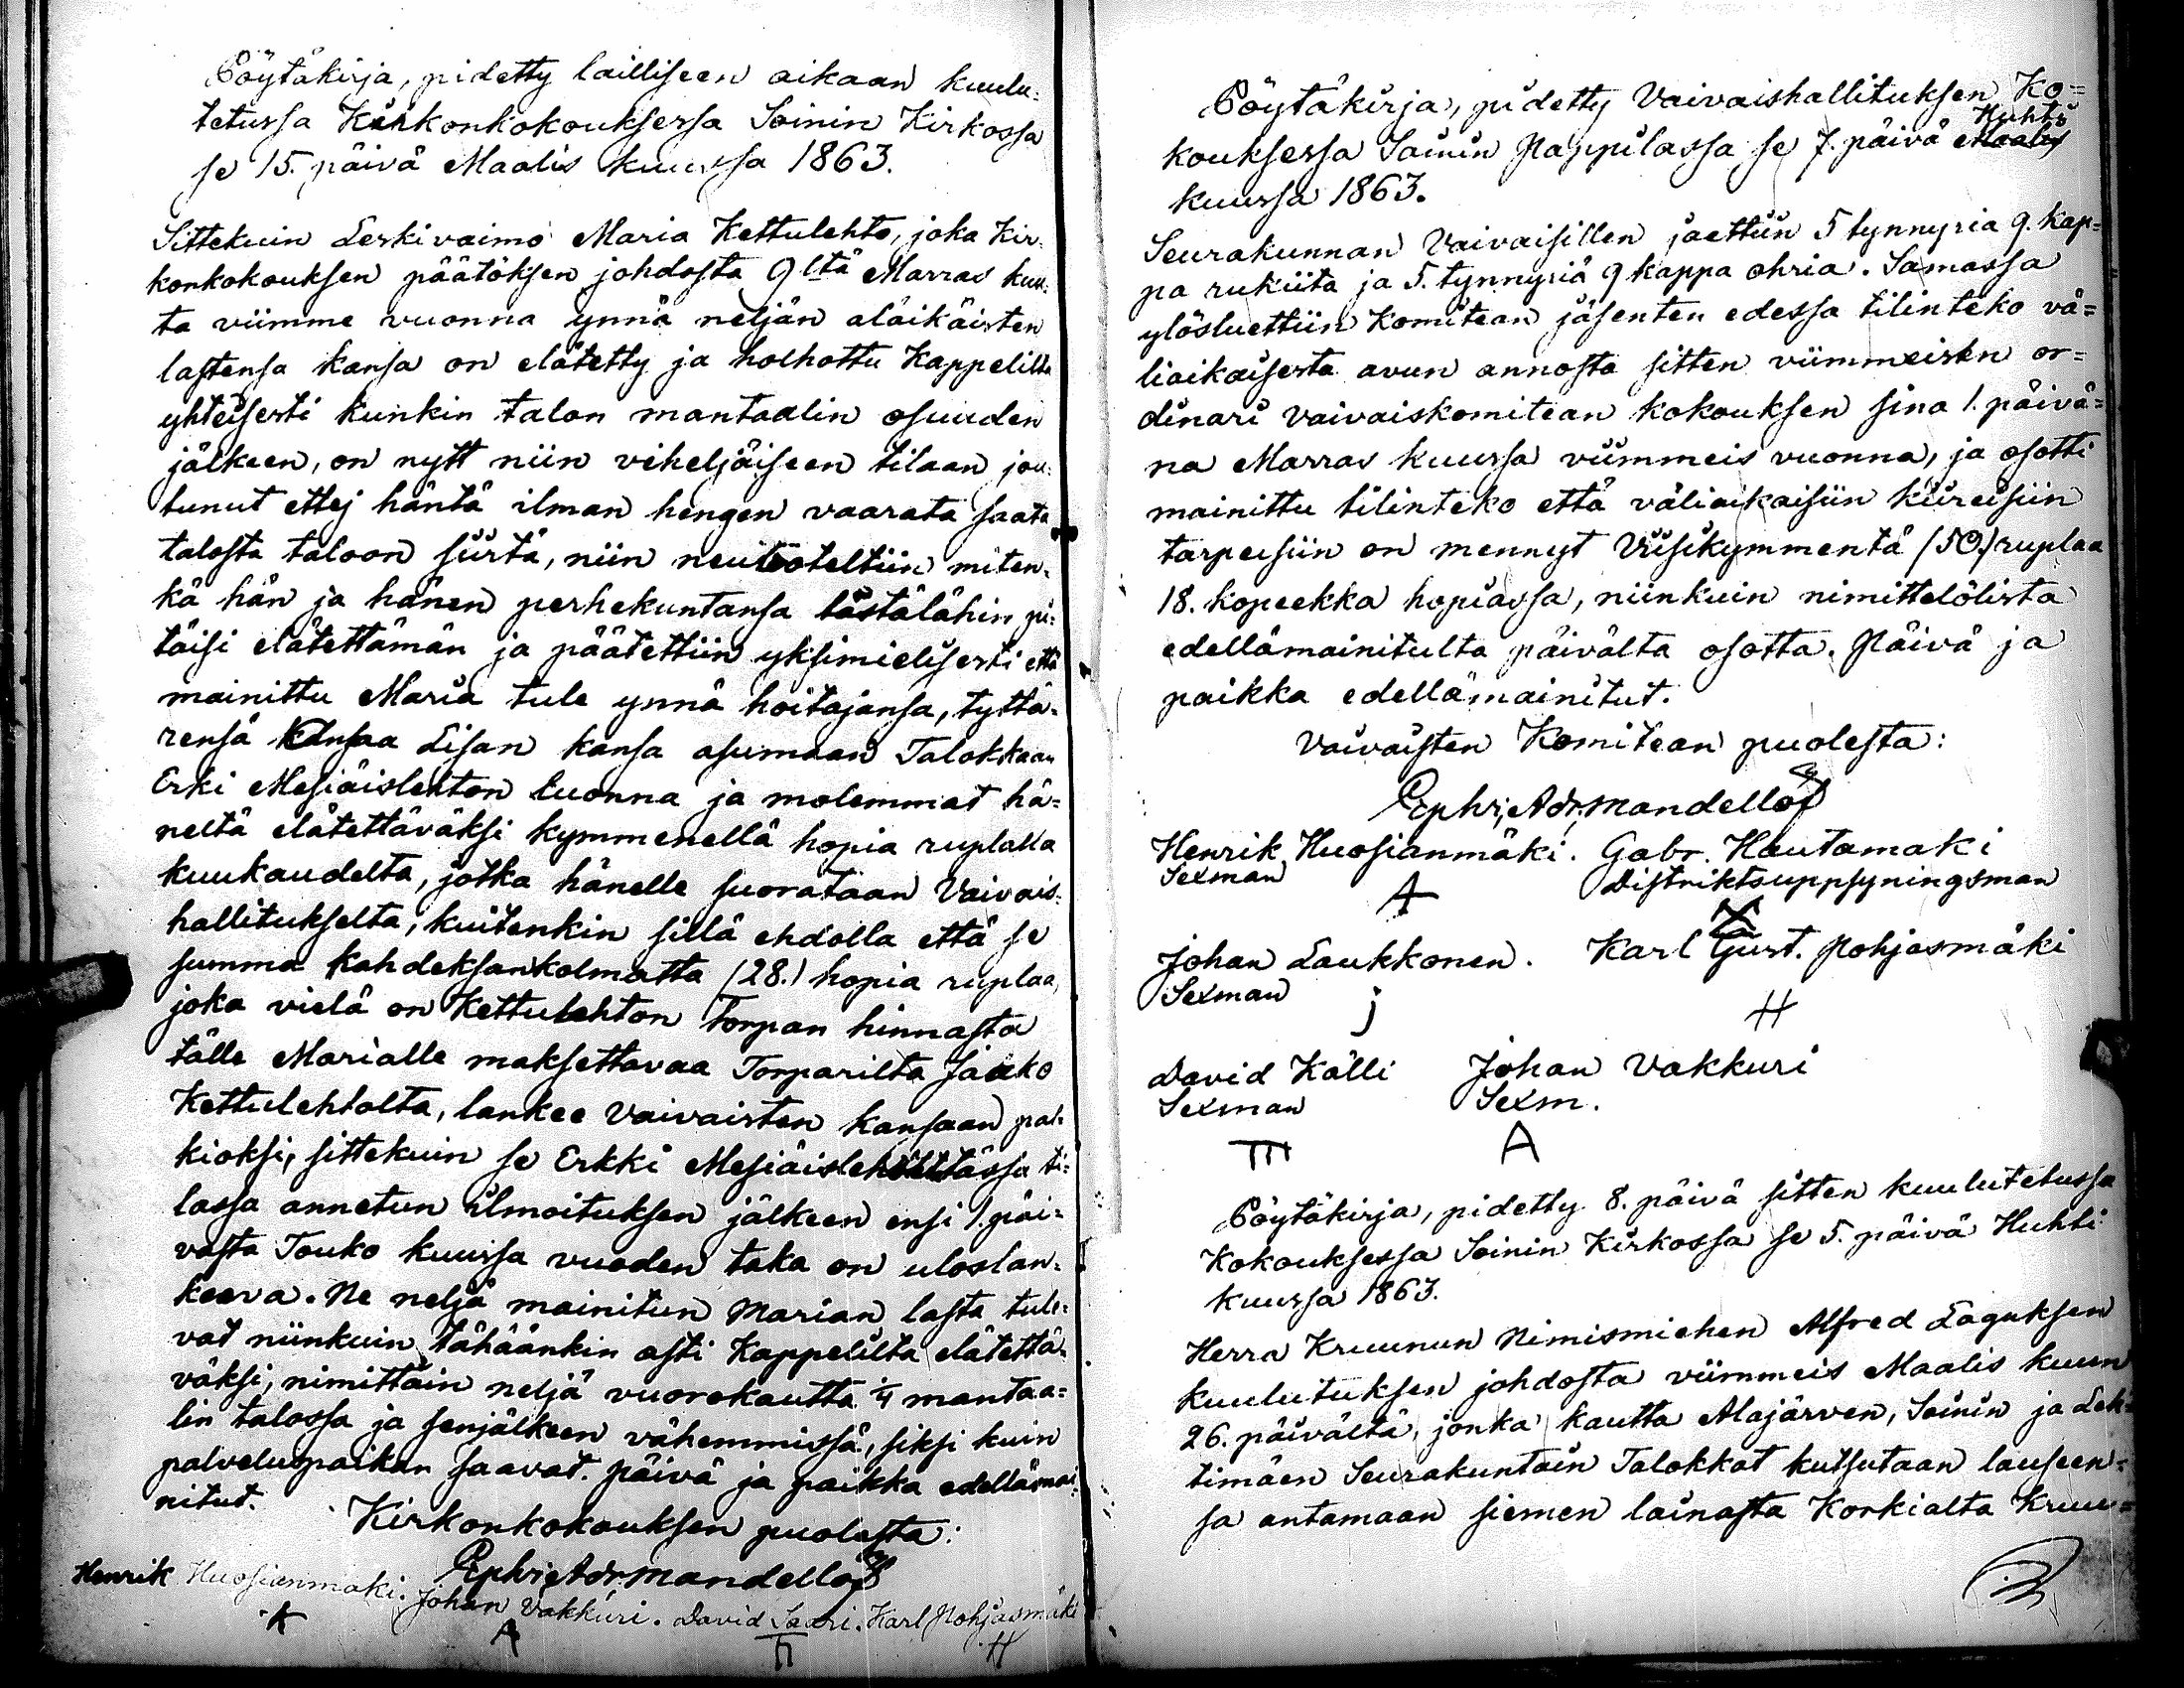 Pöytäkirja, pidetty lailliseen aikaan kuulu-
tetussa Kirkonkokouksessa Soinin Kirkossa
se 15. päivä Maalis kuussa 1863.
Sittekuin Leskivaimo Maria Kettulehto, joka Kir-
konkokouksen päätöksen johdosta 9ltä Marras kuu-
ta viimme vuonna ynnä neljän aläikäisten
lastensa kansa on elätetty ja holhottu Kappelilta
yhteisesti kunkin talon mantaalin osuuden
jälkeen, on nytt niin viheljäiseen tilaan jou-
tunut ettej häntä ilman hengen vaarata saata
talosta taloon siirtä, niin neuvoteltiin miten-
kä hän ja hänen perhekuntansa tästälähin pi-
täisi elätettämän ja päätettiin yksimielisesti että
mainittu Maria tule ynnä hoitajansa, tyttä-
rensä Lisan kansa asumaan Talokkaan
Erki Mesiäislehton luonna ja molemmat hä-
neltä elätettäväksi kymmenellä hopia ruplalla
kuukaudelta, jotka hänelle suorataan Vaivais-
hallitukselta, kuitenkin sillä ehdolla että se
summa kahdeksankolmatta (28.) hopia ruplaa,
joka vielä on Kettulehton Torpan hinnasta
tälle Marialle maksettavaa Torparilta Jaako
Kettulehtolta, lankee Vaivaisten kansaan pal-
kioksi, sittekuin se Erkki tässä ti-
lassa annetun ilmoituksen jälkeen ensi 1. päi-
västä Touko kuussa vuoden taka on uloslan-
keeva. Ne neljä mainitun Marian lasta tule-
vat niinkuin tähäänkin asti Kappelilta elätettä-
väksi, nimittäin neljä vuorokautta 1/4 mantaa-
lin talossa ja senjälkeen vähemmissä, siksi kuin
palveluspaikan saavat. päivä ja paikka edellämai-
nitut.
Kirkonkokouksen puolesta:
Ephr. Adr. Mandellöf
Henrik Huosianmäki. Johan Vakkuri. David Saari. Karl Pohjasmäki
A H
Pöytäkirja, pidetty Vaivaishallituksen Ko-
Huhti
kouksessa Soinin Pappilassa se 7. päivä Maalis
kuussa 1863.
Seurakunnan Vaivaisillen jaettiin 5 tynnyria 9. kap-
pa rukiita ja 5. tynnyriä 9 kappa ohria. Samassa
ylösluettiin Komitean jäsenten edessä tilinteko vä-
liaikaisesta avun annosta sitten viimmeisen or-
dinari vaivaiskomitean kokouksen sina 1. päivä-
na Marras kuussa viimmeis vuonna, ja osotti
mainittu tilinteko että väliaikaisiin kiireisiin
tarpeisiin on mennyt Viisikymmentä (50.) ruplaa
18. kopeekka hopiassa, niinkuin nimittelölista
edellämainitulta päivältä osotta. Päivä ja
paikka edellämainitut.
Vaivaisten Komitean puolesta:
Ephr. Adr. Mandellöf
Henrik Huosianmäki. Gabr. Hautamaki
Sexman Distriktsuppsyningsman
A
Johan Laukkonen. Karl Gust. Pohjasmäki
Sexman
J H
David Källi Johan Vakkuri
Sexman Sexm.
A
Pöytäkirja, pidetty 8. päivä sitten kuulutetussa
Kokouksessa Soinin Kirkossa se 5. päivä Huhti
kuussa 1863.
Herra Kruunun Nimismiehen Alfred Laguksen
kuulutuksen johdosta viimmeis Maalis kuun
26. päivältä, jonka kautta Alajärven, Soinin ja Leh-
timäen Seurakuntain Talokkat kutsutaan lauseen-
sa antamaan siemen lainasta Korkialta Kruu-